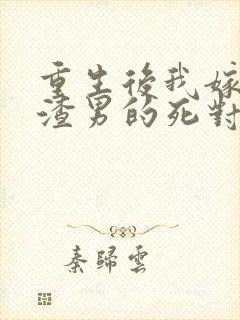 重生後我嫁
渣男的死對
秦歸雲